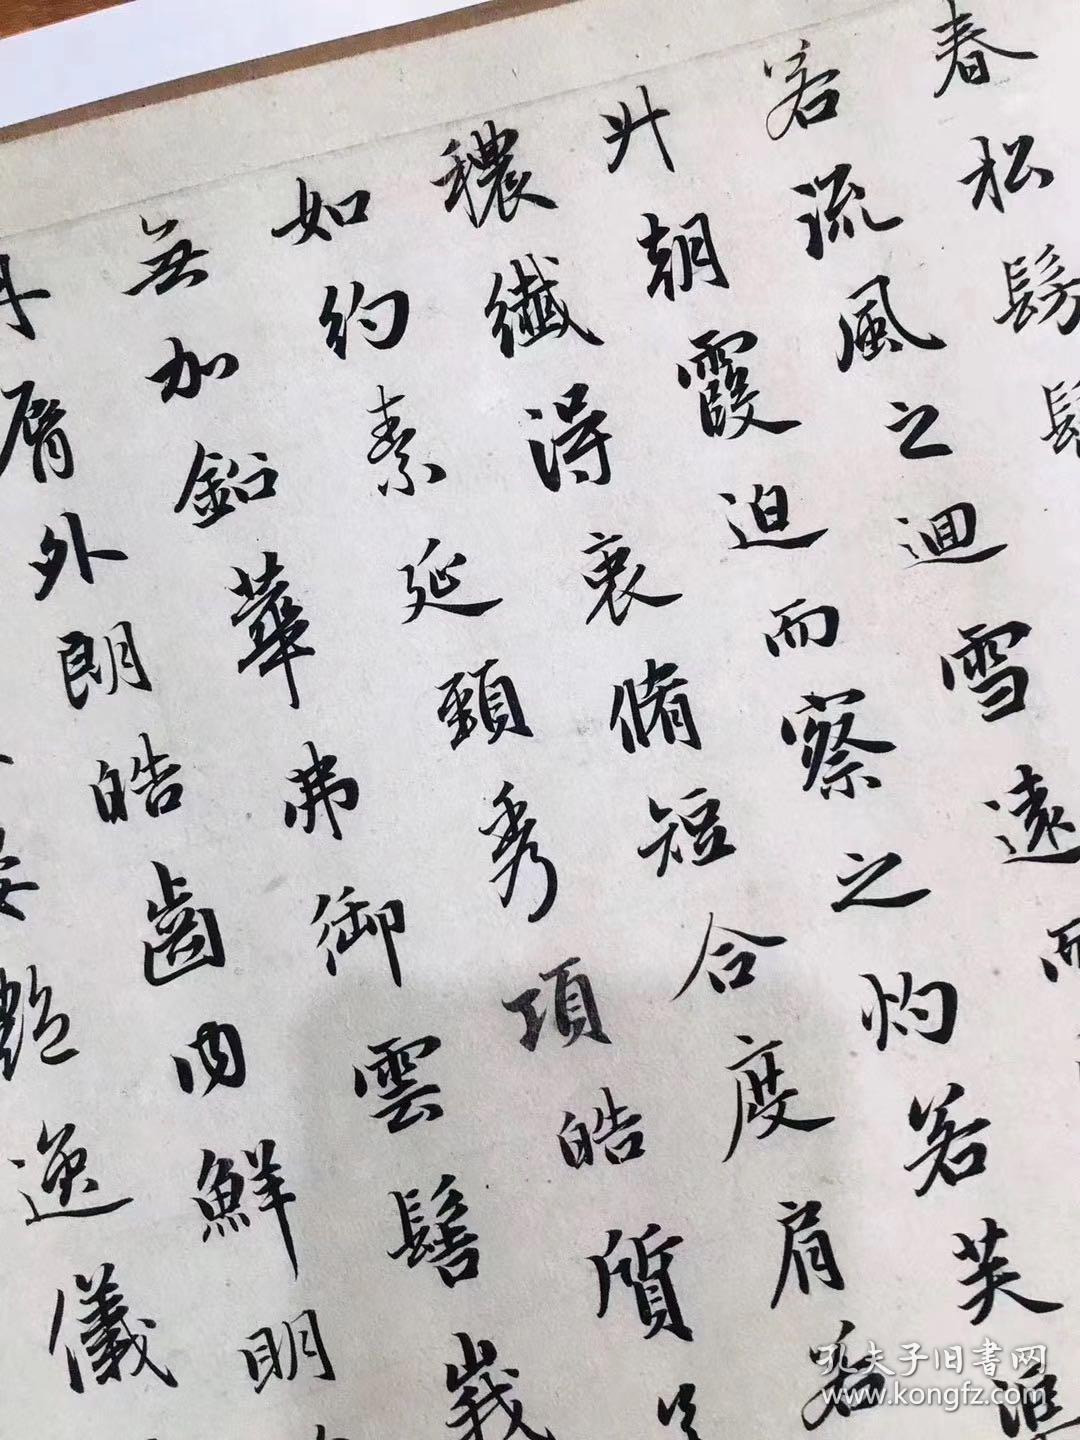 春松髣髴
若流風之迴雪遠而
升朝霞迫而察之灼若芙
穠纖得衷脩短合度肩若
如約素延頸秀項皓質呈
無加鉛華弗御雲髻峩
丹脣外朗皓齒内鮮明
艶逸儀
孔夫子旧書网
www.kongfz.com